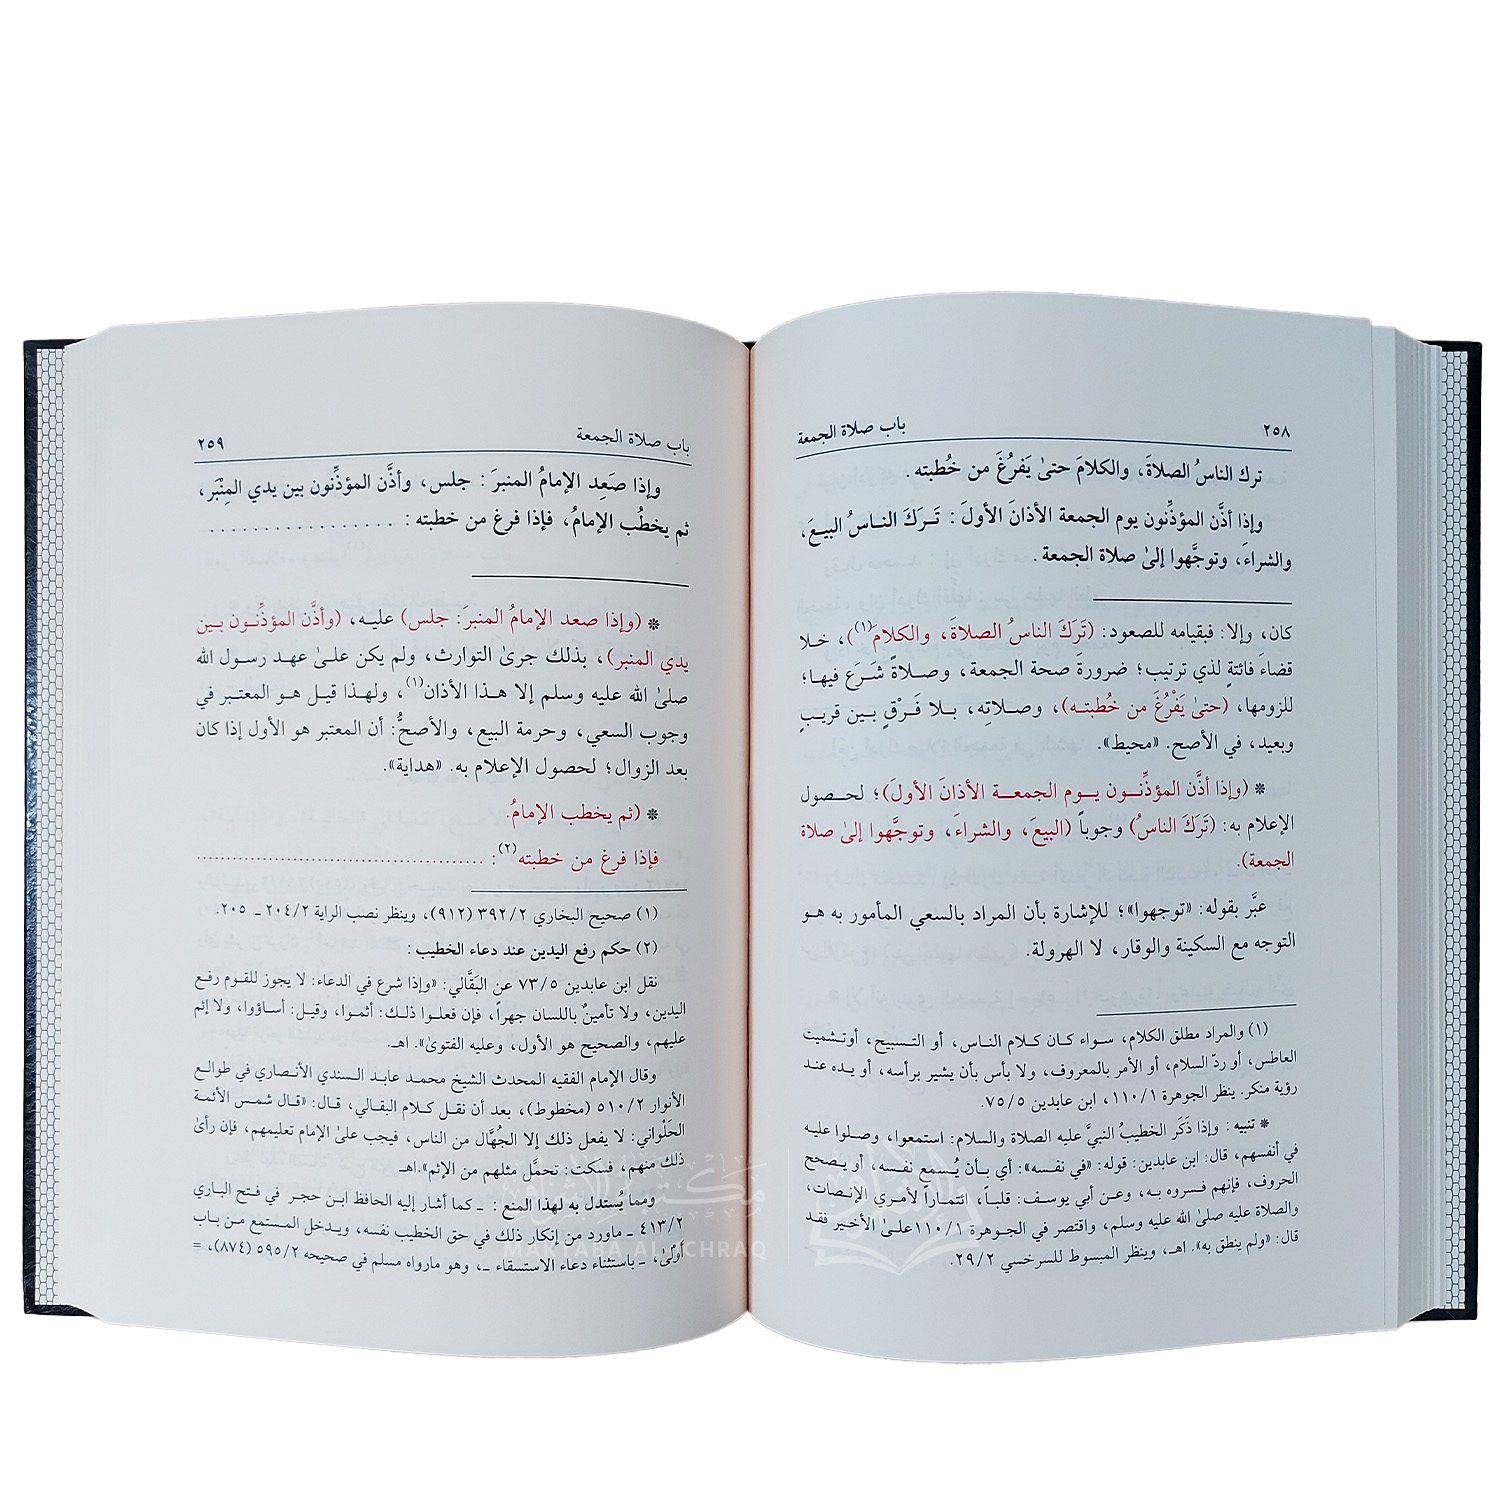 ٢٥٨ باب صلاة الجمعة
ترك الناسُ الصلاةَ، والكلامَ حتىٰ يَفرُغَ من خُطبته .
وإذا أذَّن المؤذِّنون يوم الجمعة الأذانَ الأولَ : تَـرَكَ النـاسُ البيـعَ،
والشراءَ، وتوجَّهوا إلىٰ صلاة الجمعة .
كان، وإلا: فبقيامه للصعود: (تَرَكَ الناسُ الصلاةَ، والكلامَ(١))، خـلا
قضاءَ فائتةٍ لذي ترتيب؛ ضرورةَ صحة الجمعة، وصـلاةً شَـرَع فيهـا؛
للزومها، (حتىٰ يَفْرُغَ من خُطبتـه)، وصـلاتِه، بـلا فَـرْقٍ بـين قريـبٍ
وبعيد، في الأصح. «محيط».
❊ (وإذا أذَّن المؤذِّنـون يـوم الجمعـة الأذانَ الأولَ)؛ لحـصول
الإعلام به: (تَرَكَ الناسُ) وجوباً (البيعَ، والشراءَ، وتوجَّهوا إلىٰ صلاة
الجمعة).
عبَّر بقوله: «توجهوا»؛ للإشارة بأن المراد بالسعي المأمور به هو
التوجه مع السكينة والوقار، لا الهرولة.
(١) والمراد مطلق الكلام، سـواء كـان كـلام النـاس، أو التـسبيح، أوتـشميت
العاطس، أو ردّ السلام، أو الأمر بالمعروف، ولا بأس بأن يشير برأسه، أو يـده عنـد
رؤية منكر. ينظر الجوهرة ١١٠/١، ابن عابدين ٧٥/٥.
* تنبيه : وإذا ذكَر الخطيبُ النبيَّ عليه الصلاة والسلام: استمعوا، وصـلوا عليـه
في أنفسهم، قال: ابن عابدين: قوله: «في نفسه»: أي بـأن يُـسمِع نفـسه، أو يـصحح
الحروف، فإنهم فسروه بـه، وعـن أبي يوسـف: قلبـاً، ائتمـاراً لأمـري الإنـصات،
والصلاة عليه صلىٰ الله عليه وسلم، واقتصر في الجـوهرة ١١٠/١علـىٰ الأخيـر فقـد
قال: «ولم ينطق به». اهـ، وينظر المبسوط للسرخسي ٢٩/٢.
باب صلاة الجمعة ٢٥٩
وإذا صَعِد الإمامُ المنبرَ : جلس، وأذَّن المؤذِّنون بين يدي المِنْبَر،
ثم يخطُب الإمامُ، فإذا فرغ من خطبته : . . . . . . . . . . . . . . . . .
❊ (وإذا صعد الإمامُ المنبرَ: جلس) عليـه، (وأذَّن المؤذِّنـون بـين
يدي المنبر)، بذلك جرىٰ التوارث، ولم يكن علـىٰ عهـد رسـول الله
صلىٰ الله عليه وسلم إلا هـذا الأذان(١)، ولهـذا قيـل هـو المعتبـر في
وجوب السعي، وحرمة البيع، والأصحُّ: أن المعتبر هو الأول إذا كان
بعد الزوال؛ لحصول الإعلام به. «هداية».
❊ (ثم يخطب الإمامُ.
فإذا فرغ من خطبته(٢): ................................................
(١) صحيح البخاري ٣٩٢/٢ (٩١٢)، وينظر نصب الراية ٢٠٤/٢ ـ ٢٠٥.
(٢) حكم رفع اليدين عند دعاء الخطيب :
نقل ابن عابدين ٧٣/٥ عن البَقَّالي: «وإذا شرع في الدعاء: لا يجوز للقوم رفـع
اليدين، ولا تأمينٌ باللسان جهراً، فإن فعلـوا ذلـك: أثمـوا، وقيـل: أسـاؤوا، ولا إثم
عليهم، والصحيح هو الأول، وعليه الفتوىٰ». اهـ.
وقال الإمام الفقيه المحدث الشيخ محمـد عابـد السنـدي الأنـصاري في طوالـع
الأنوار ٥١٠/٢ (مخطوط)، بعد أن نقـل كـلام البقـالي، قـال: «قـال شمـس الأئمـة
الحَلْواني: لا يفعل ذلك إلا الجُهَّال من الناس، فيجب علىٰ الإمام تعليمهم، فإن رأىٰ
ذلك منهم، فسكت: تحمَّل مثلهم من الإثم».اهـ
ومما يُستدل به لهذا المنع : ـ كما أشار إليه الحافظ ابـن حجـر في فتـح البـاري
٤١٣/٢ ـ ماورد من إنكار ذلك في حق الخطيب نفسه، ويـدخل المستمع مـن بـاب
أَولىٰ، ـ باستثناء دعاء الاستسقاء ـ، وهو مارواه مسلم في صحيحه ٥٩٥/٢ (٨٧٤)، =